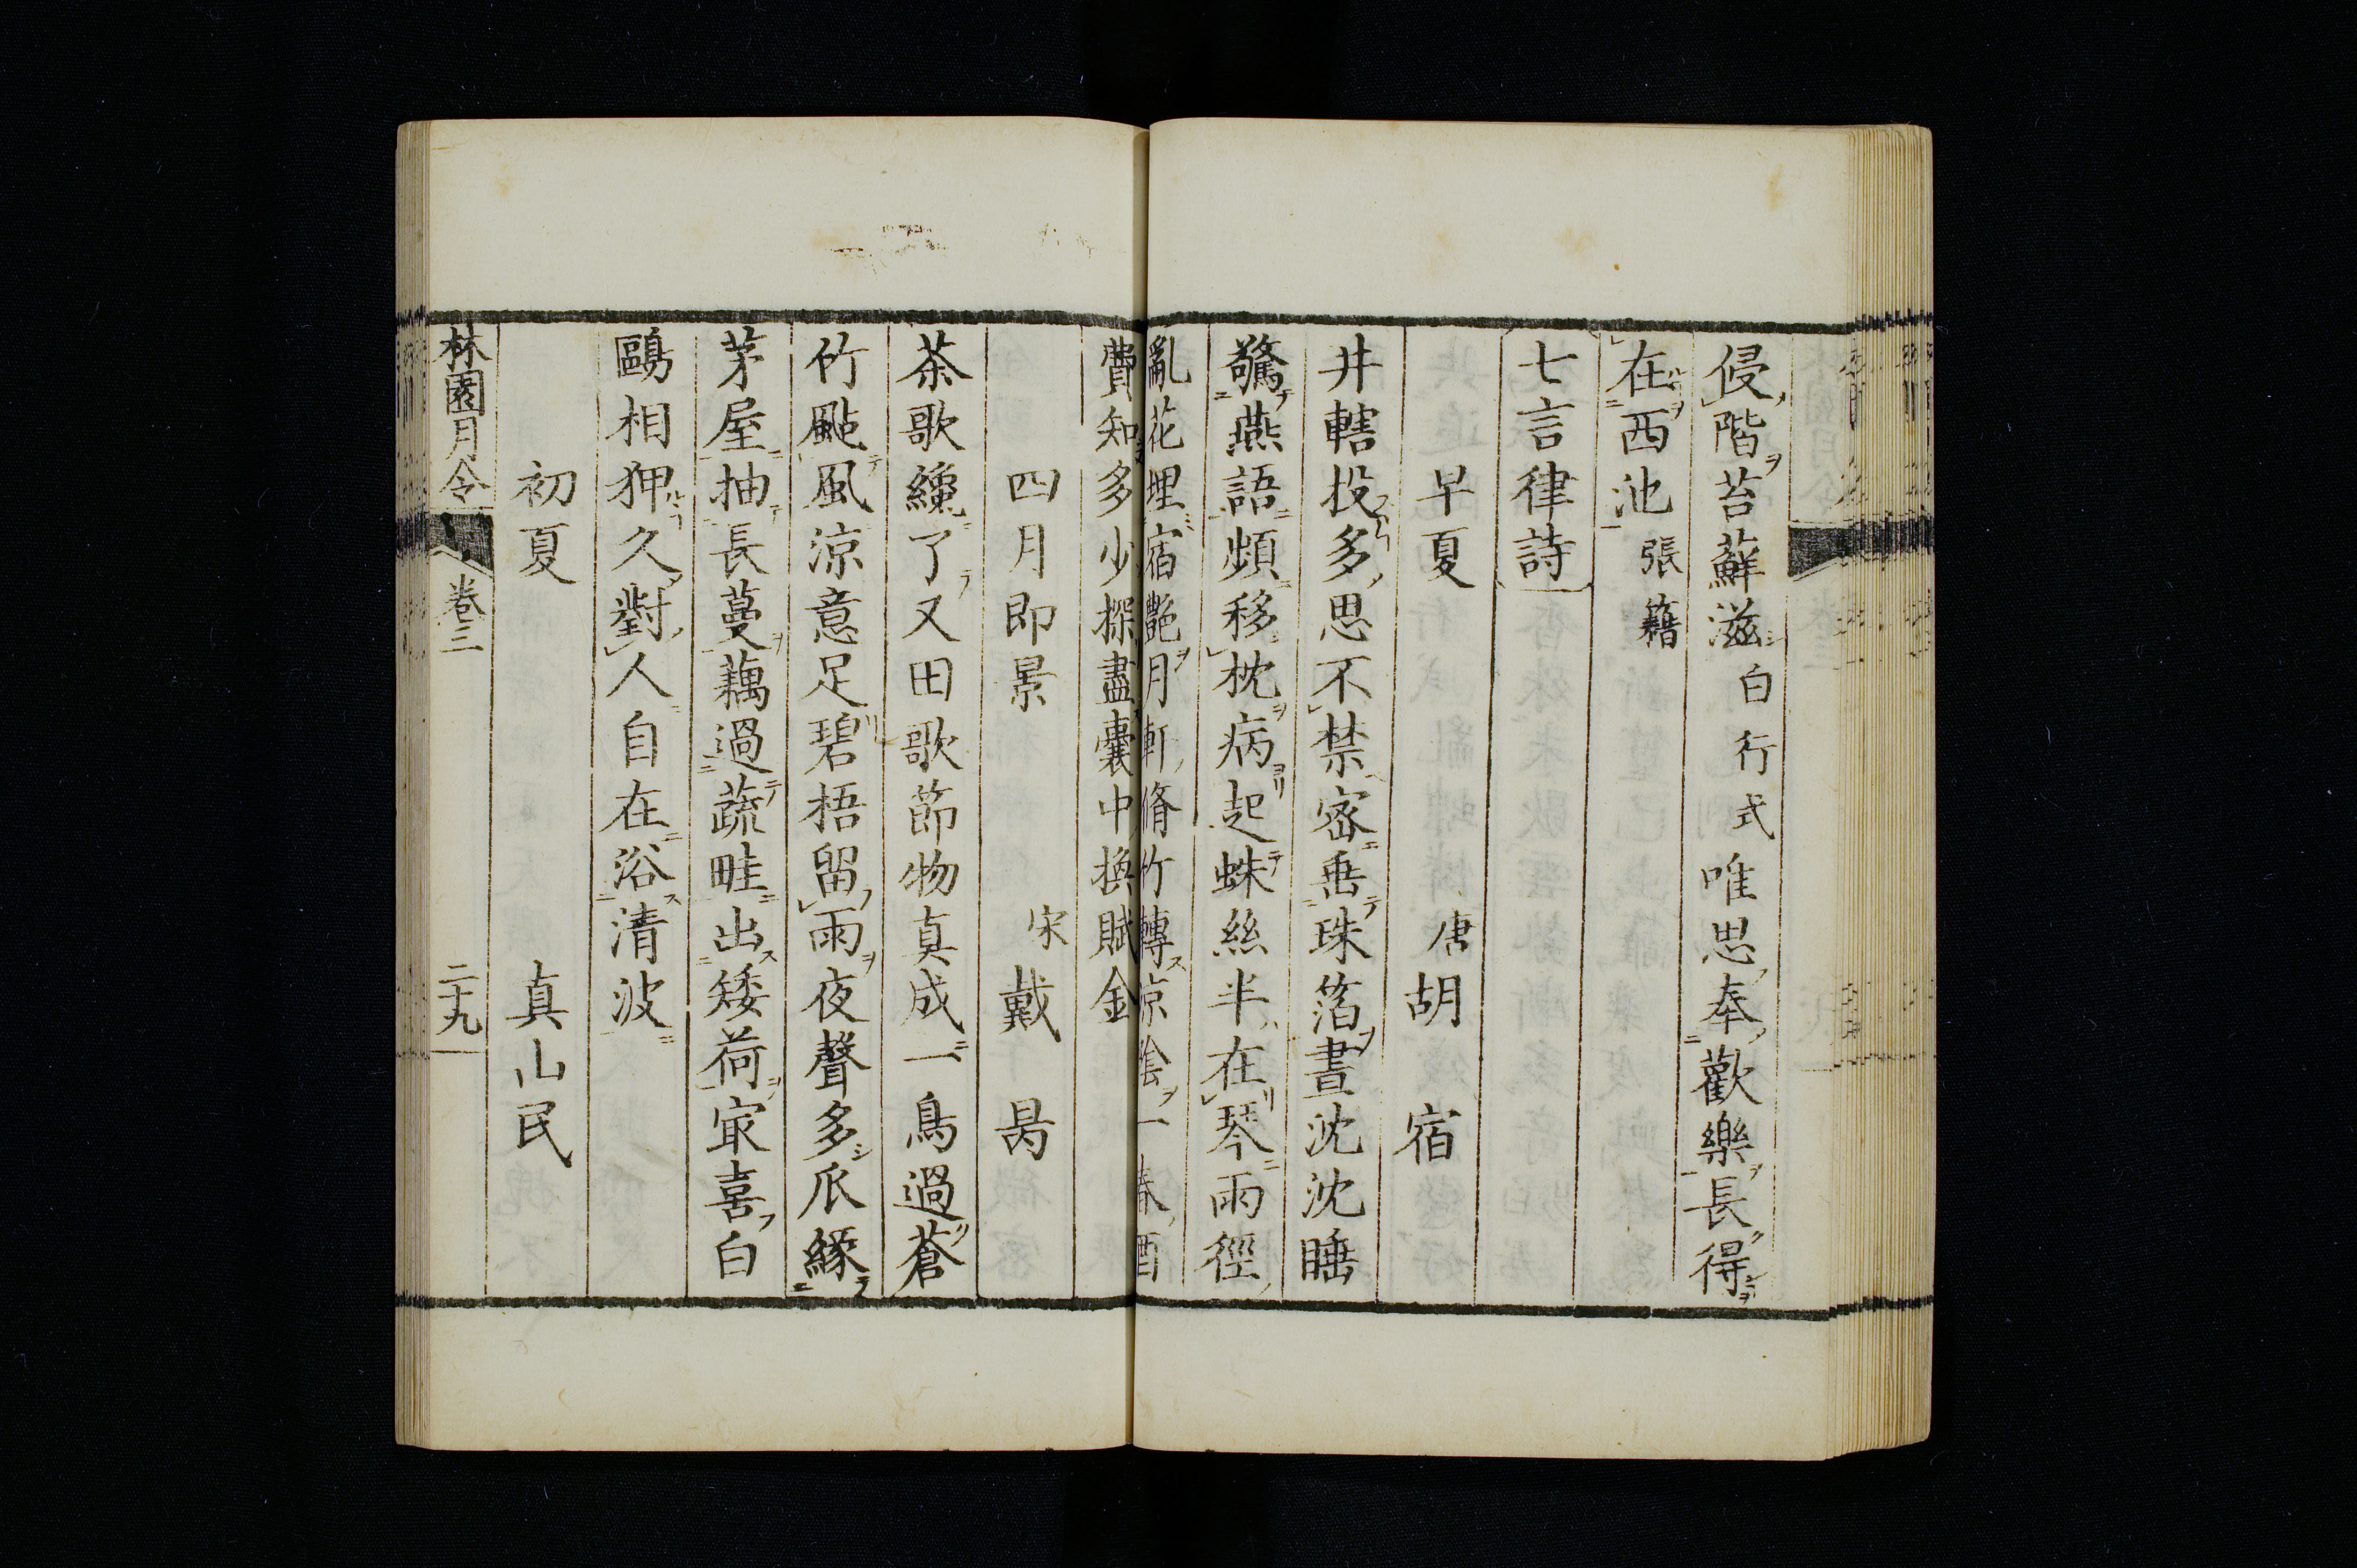 侵階苔蘚滋白行式唯思奉歡樂長得
在西池張籍
七言律詩
早夏 唐胡宿
井轄投多思不禁密垂珠箔晝沈沈睡
驚燕語頻移枕病起蛛絲半在琴雨徑
亂花埋宿艷月軒脩竹轉涼陰一春酒
費知多少探盡囊中換賦金
四月即景 宋戴昺
茶歌纔了又田歌節物真成一鳥過蒼
竹颭風涼意足碧梧留雨夜聲多爪緣
茅屋抽長蔓藕過蔬畦出矮荷㝡喜白
鷗相狎久對人自在浴清波
初夏 真山民
林園月令 卷三 二十九